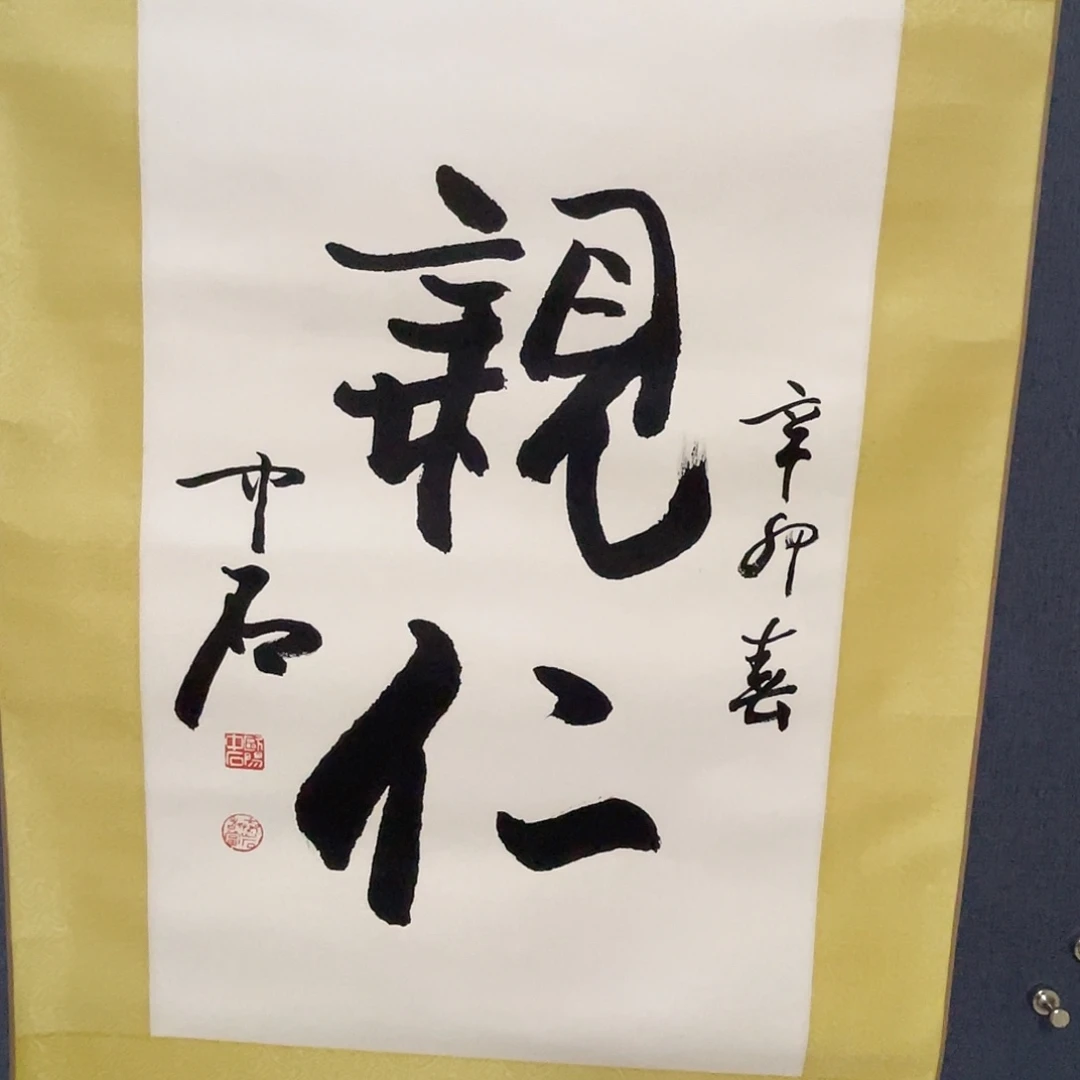 辛卯春
親仁
中石
歐陽中石